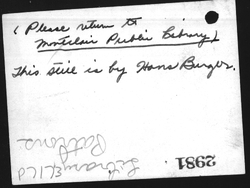 ( Please return to
Montclair Public Library )
This still is by Hans Burger.
2981